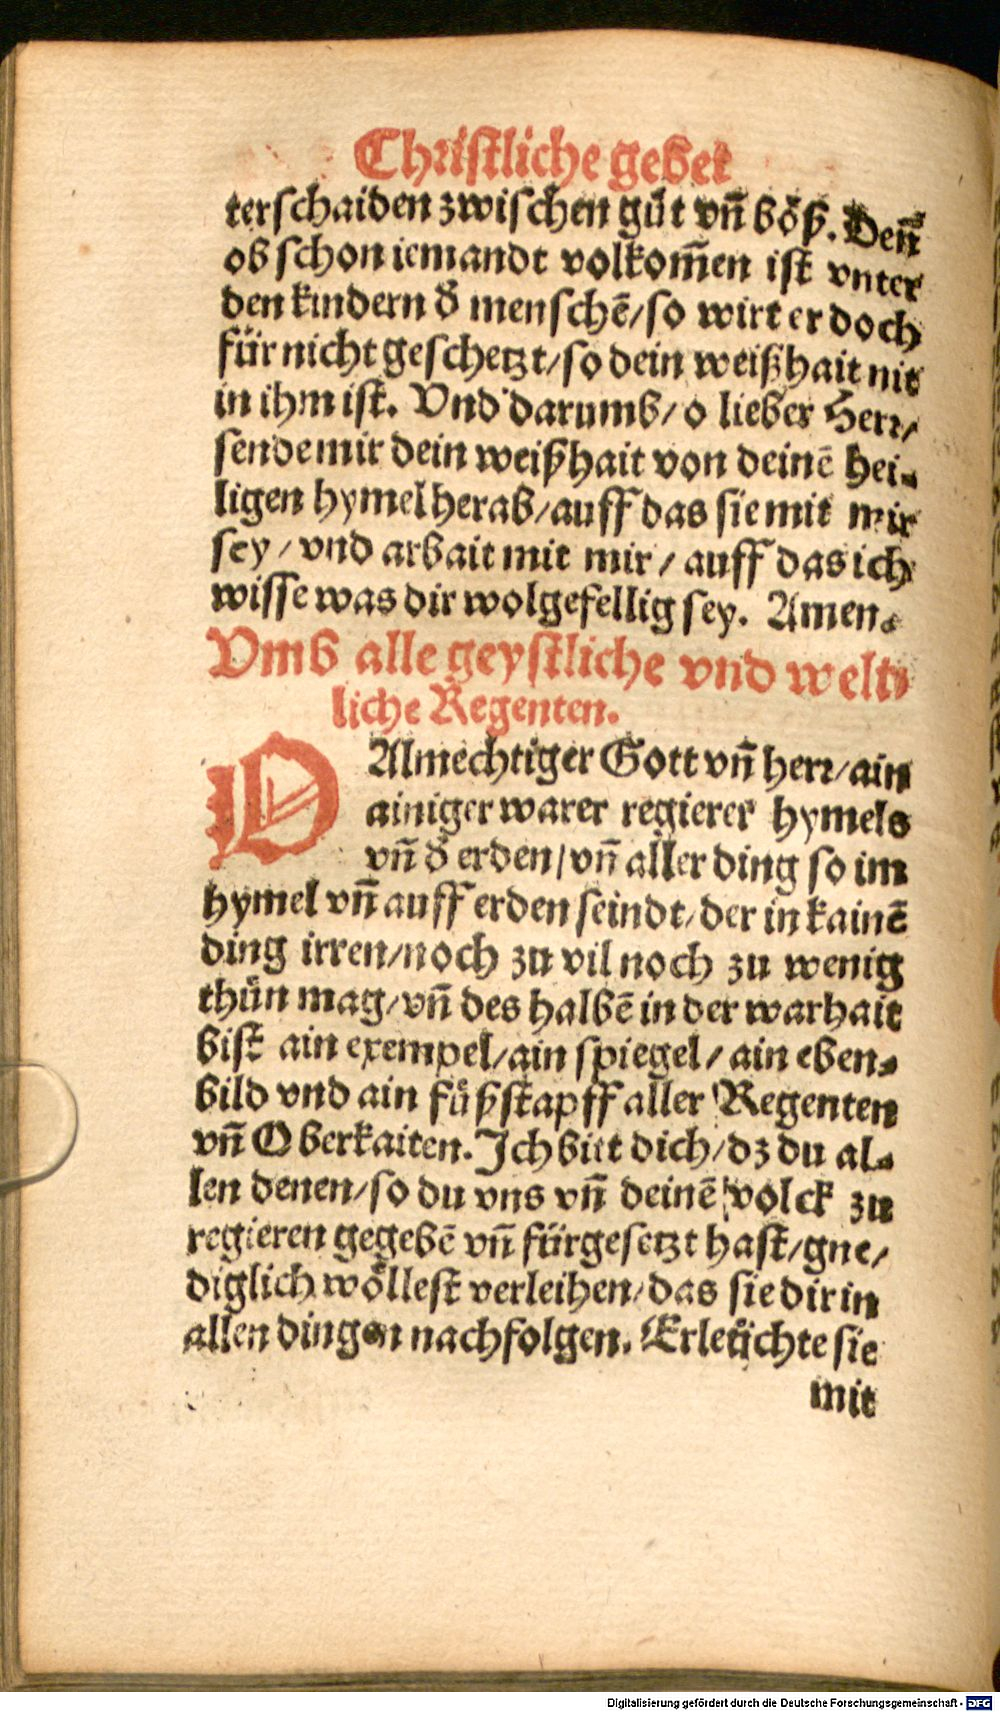 Christliche gebet
terschaiden zwischen gůt vñ böß. Deñ
ob schon iemandt volkom̃en ist vnter
den kindern d̕ menschẽ/so wirt er doch
für nicht geschetzt/so dein weißhait nit
in ihm ist. Vnd darumb/o lieber Herr/
sende mir dein weißhait von deinẽ hei-
ligen hymel herab/auff das sie mit mir
sey/vnd arbait mit mir/auff das ich
wisse was dir wolgefellig sey. Amen.
Vmb alle geystliche vnd welt-
liche Regenten.
O Almechtiger Gott vñ herr/ain
ainiger warer regierer hymels
vñ d̕ erden/vñ aller ding so im
hymel vñ auff erden seindt/der in kainẽ
ding irren/noch zu vil noch zu wenig
thůn mag/vñ des halbẽ in der warhait
bist ain exempel/ain spiegel/ain eben-
bild vnd ain fůßstapff aller Regenten
vñ Oberkaiten. Ich bitt dich/dz du al-
len denen/so du vns vñ deinẽ volck zu
regieren gegebẽ vñ fürgesetzt hast/gne/
diglich wöllest verleihen/das sie dir in
allen dingen nachfolgen. Erleüchte sie
mit
Digitalisierung gefördert durch die Deutsche Forschungsgemeinschaft - DFG